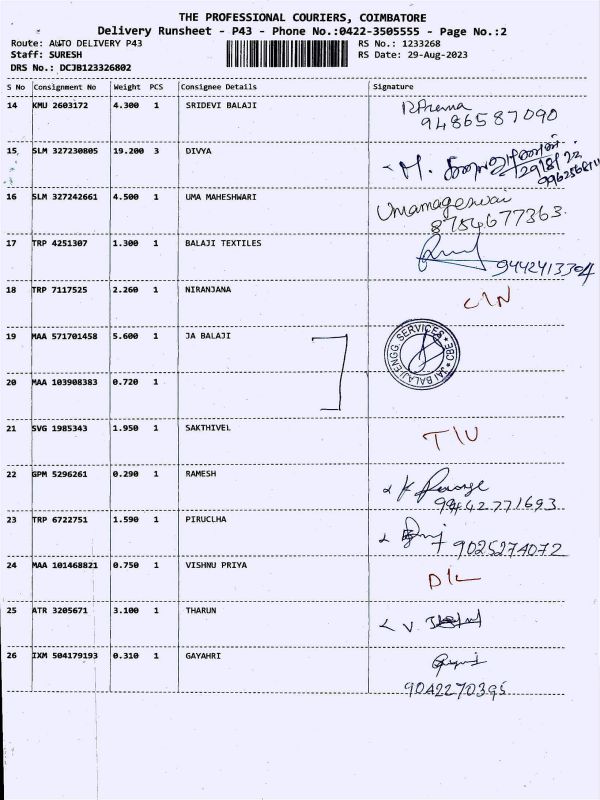 THE PROFESSIONAL COURIERS, COIMBATORE
Delivery Runsheet - P43 - Phone No.:0422-3505555 - Page No.:2
Route: AUTO DELIVERY P43 RS No.: 1233268
Staff: SURESH RS Date: 29-Aug-2023
DRS No.: DCJB123326802
S No Consignment No Weight PCS Consignee Details Signature
14 KMU 2603172 4.300 1 SRIDEVI BALAJI
9486587090
15 SLM 327230805 19.200 3 DIVYA
16 SLM 327242661 4.500 1 UMA MAHESHWARI
8754677363
17 TRP 4251307 1.300 1 BALAJI TEXTILES
9442413304
18 TRP 7117525 2.260 1 NIRANJANA
19 MAA 571701458 5.600 1 JA BALAJI
JAI BALAJI ENGG. SERVICES CBE
20 MAA 103908383 0.720 1
21 SVG 1985343 1.950 1 SAKTHIVEL
22 GPM 5296261 0.290 1 RAMESH
9442771693
23 TRP 6722751 1.590 1 PIRUCLHA
9025274072
24 MAA 101468821 0.750 1 VISHNU PRIYA
D/L
25 ATR 3205671 3.100 1 THARUN
26 IXM 504179193 0.310 1 GAYAHRI
9042270395